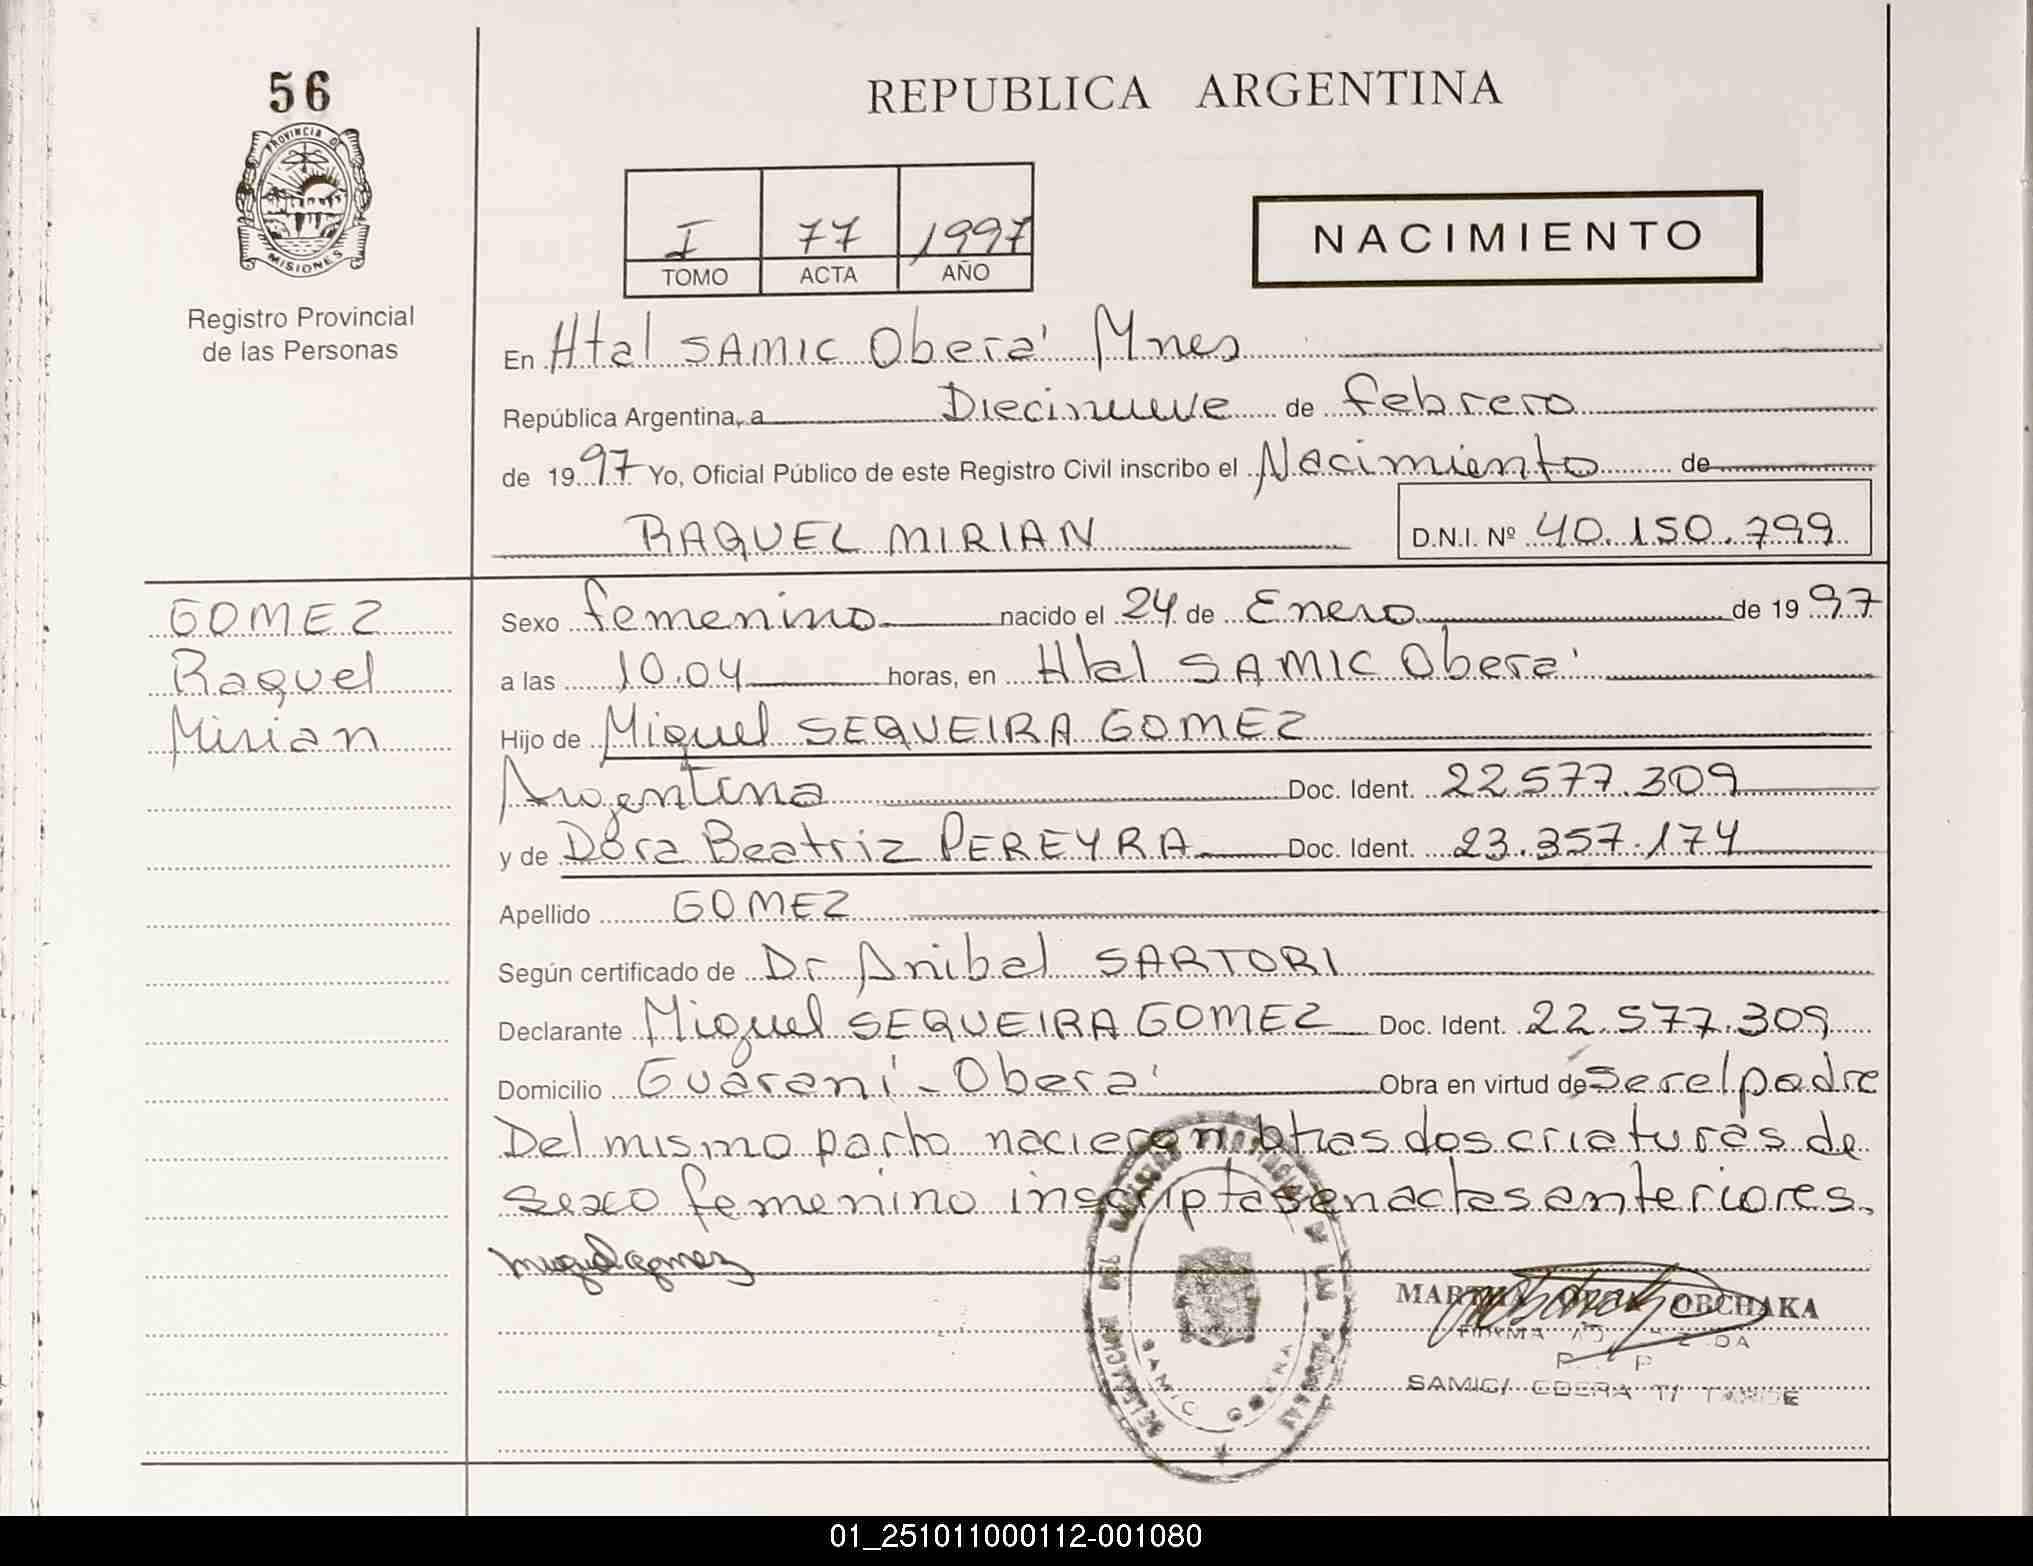 56
REPUBLICA ARGENTINA
PROVINCIA D
MISIONES
Registro Provincial
de las Personas
I 77 1997
TOMO ACTA AÑO
NACIMIENTO
En Htal SAMIC Oberá Mnes
República Argentina, a Diecinueve de febrero
de 1997 Yo, Oficial Público de este Registro Civil inscribo el Nacimiento de
RAQUEL MIRIAN D.N.I. Nº 40.150.799
GOMEZ
Raquel
Mirian
Sexo femenino nacido el 24 de Enero de 1997
a las 10.04 horas, en Htal SAMIC Oberá
Hijo de Miguel SEQUEIRA GOMEZ
Argentina Doc. Ident. 22.577.309
y de Dora Beatriz PEREYRA Doc. Ident. 23.357.174
Apellido GOMEZ
Según certificado de Dr Anibal SARTORI
Declarante Miguel SEQUEIRA GOMEZ Doc. Ident. 22.577.309
Domicilio Guaraní - Oberá Obra en virtud de ser el padre
Del mismo parto nacieron otras dos criaturas de
sexo femenino inscriptas en actas anteriores.
Miguel Gomez
MARTHA OBCHAKA
FIRMA
SAMIC/ OBERA T/ TARDE
SAMIC OBERA
01_251011000112-001080